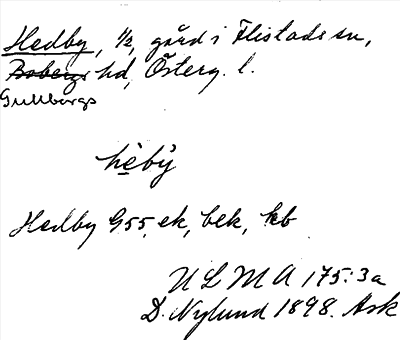 Hedby, 1/2, gård i Flistads sn,
Bobergs hd, Österg. l.
Gullbergs
hèby̆
Hedby G55, ek, bek, kb
ULMA 175:3a
D. Nylund 1898. Ask